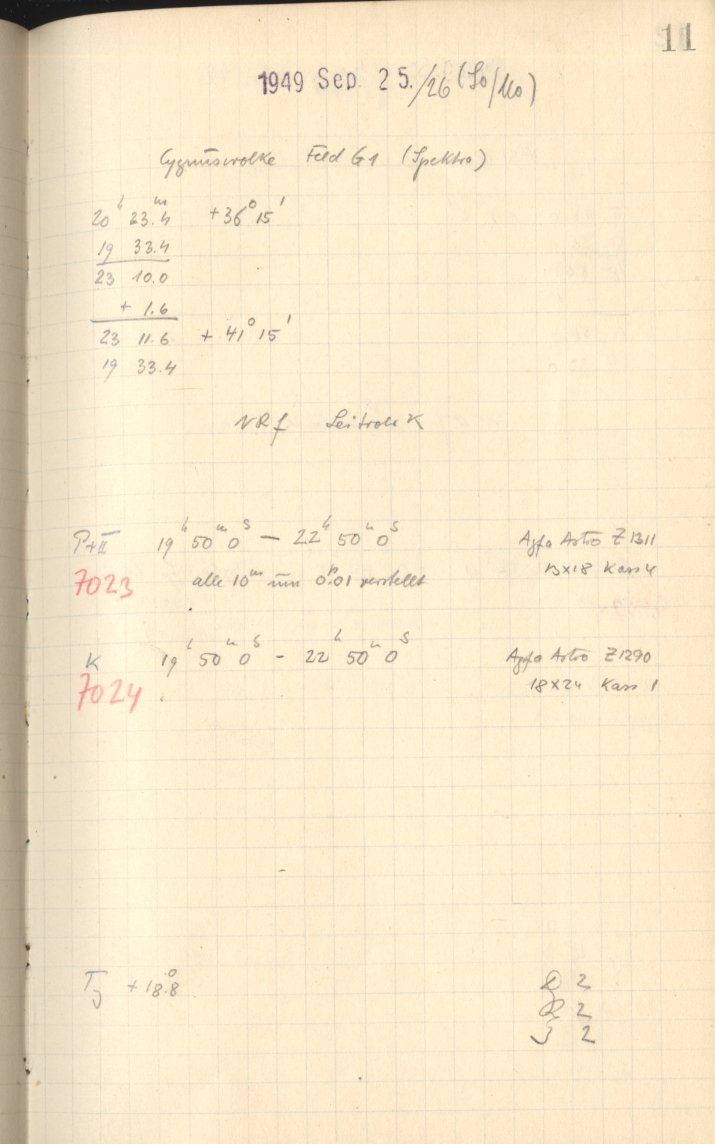 11
1949 Sep. 25./26 (So/Mo)
Cygnuswolke Feld G1 (Spektra)
20ʰ 23.ᵐ4 +36° 15'
19 33.4
23 10.0
+ 1.6
23 11.6 + 41° 15'
19 33.4
NRf Leitrohr K
P+II 19ʰ 50ᵐ 0ˢ — 22ʰ 50ᵐ 0ˢ Agfa Astro Z 1311
13x18 Kass 4
7023 alle 10ᵐ um 0.01 verstellt
K 19ʰ 50ᵐ 0ˢ - 22ʰ 50ᵐ 0ˢ Agfa Astro Z1290
7024 18x24 Kass 1
+18.°8
D 2
R 2
J 2